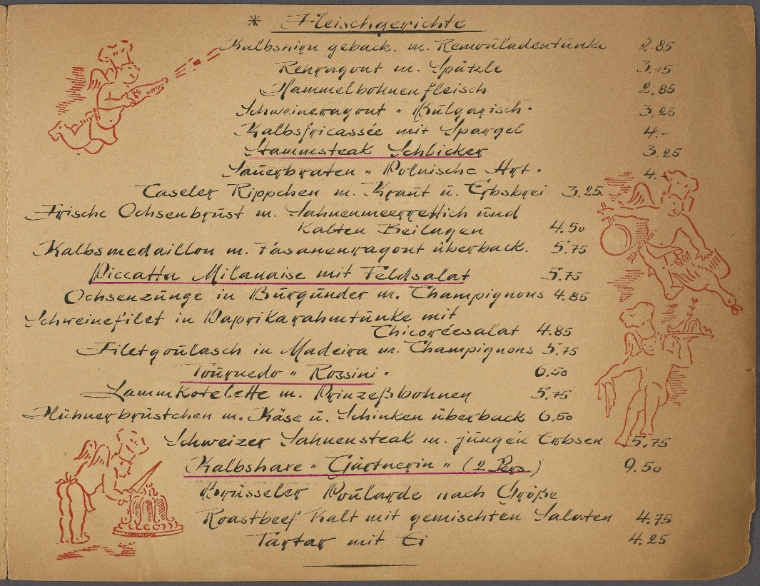 * Fleischgerichte
Kalbsnirn geback. m. Remouladentunke 2.85
Rehragout m. Spätzle 3.25
Hammelbohnenfleisch 2.85
Schweineragout "Bulgarisch" 3.25
Kalbsfricassée mit Spargel 4.-
Stammsteak Schlicker 3.25
Sauerbraten "Polnische Art" 4.
Caseler Rippchen m. Kraut u. Erbsbrei 3.25
Frische Ochsenbrust m. Sahnenmeerrettich und
Kalten Beilagen 4.50
Kalbsmedaillon m. Fasanenragout überback. 5.75
Piccatta Milanaise mit Feldsalat 5.75
Ochsenzunge in Burgunder m. Champignons 4.85
Schweinefilet in Paprikarahmtunke mit
Chicoréesalat 4.85
Filetgoulasch in Madeira m. Champignons 5.75
Tournedo "Rossini" 6.50
Lammkotelette m. Prinzeßbohnen 5.75
Hühnerbrüstchen m. Käse u. Schinken überback 6.50
Schweizer Sahnensteak m. jungen Erbsen 5.75
Kalbshaxe "Gärtnerin" (2 Pers.) 9.50
Brüsseler Poularde nach Größe
Roastbeef Kalt mit gemischten Salaten 4.75
Tartar mit Ei 4.25